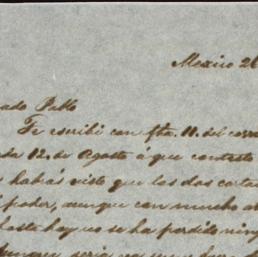 Mexico 26
ado Pablo
Te escribi con fha. 11. del corr
da 12. de Agosto á que contesto
habrás visto que las dos carta
poder, aunque con mucho a
hasta hoy no se ha perdido nin